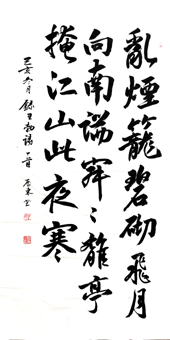 亂煙籠碧砌飛月
向南端寂〻離亭
掩江山此夜寒
己亥 月錄王勃詩一首